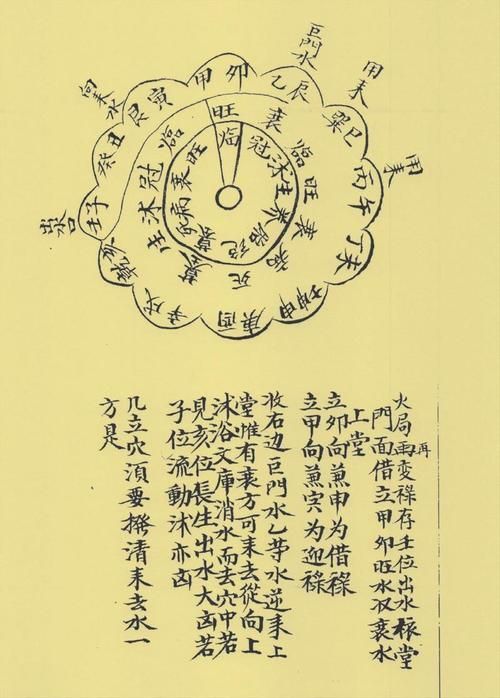 巨門水
用来
用来
向来水
出水
甲卯
乙辰
巽巳
丙午
丁未
坤申
庚酉
辛戌
乾亥
壬子
癸丑
艮寅
旺
衰
臨
旺
衰
死
生
沐
冠
臨
临
冠
沐
生
养
胎
绝
墓
死
病
衰
旺
火局再变祿存壬位出水根堂
門面借立甲卯旺水収衰水
上堂
立卯向兼申为借祿
立甲向兼寅为迎祿
收右边巨門水乙等水逆来上
堂惟有衰方可来去從向上
沐浴文庫消水而去穴中若
見亥位長生出水大凶若
子位流動沐亦凶
凡立穴須要撥清来去水一
方是